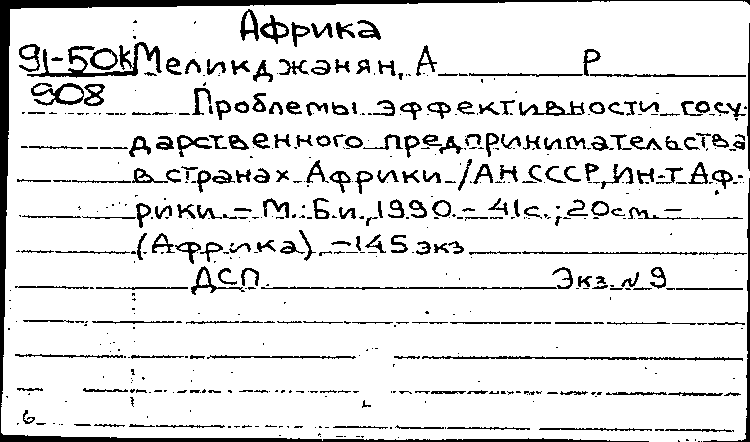 Африка
91-50к Меликджанян, А Р
908 Проблемы эффективности госу-
дарственного предпринимательства
в странах Африки /АН СССР, Ин-т Аф-
рики. – М.: Б.и., 1990. – 41с.; 20см. –
(Африка). – 145 экз
ДСП. Экз. № 9
6